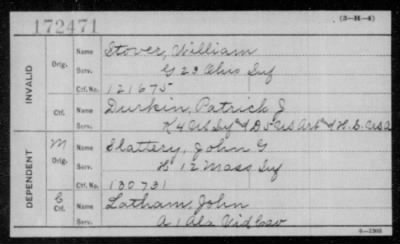 172471
(3-M-4)
INVALID
Orig.
Name Stover, William
Serv. G 23 Ohio Inf
Ctf. No. 121675
Ctf.
Name Durkin, Patrick J
Serv. K 4 US Inf & D 5 US Art & H. S. USA
DEPENDENT
M
Orig.
Name Slattery, John G
Serv. H 12 Mass Inf
Ctf. No. 130731
C
Ctf.
Name Latham, John
Serv. A 1 Ala Vid Cav